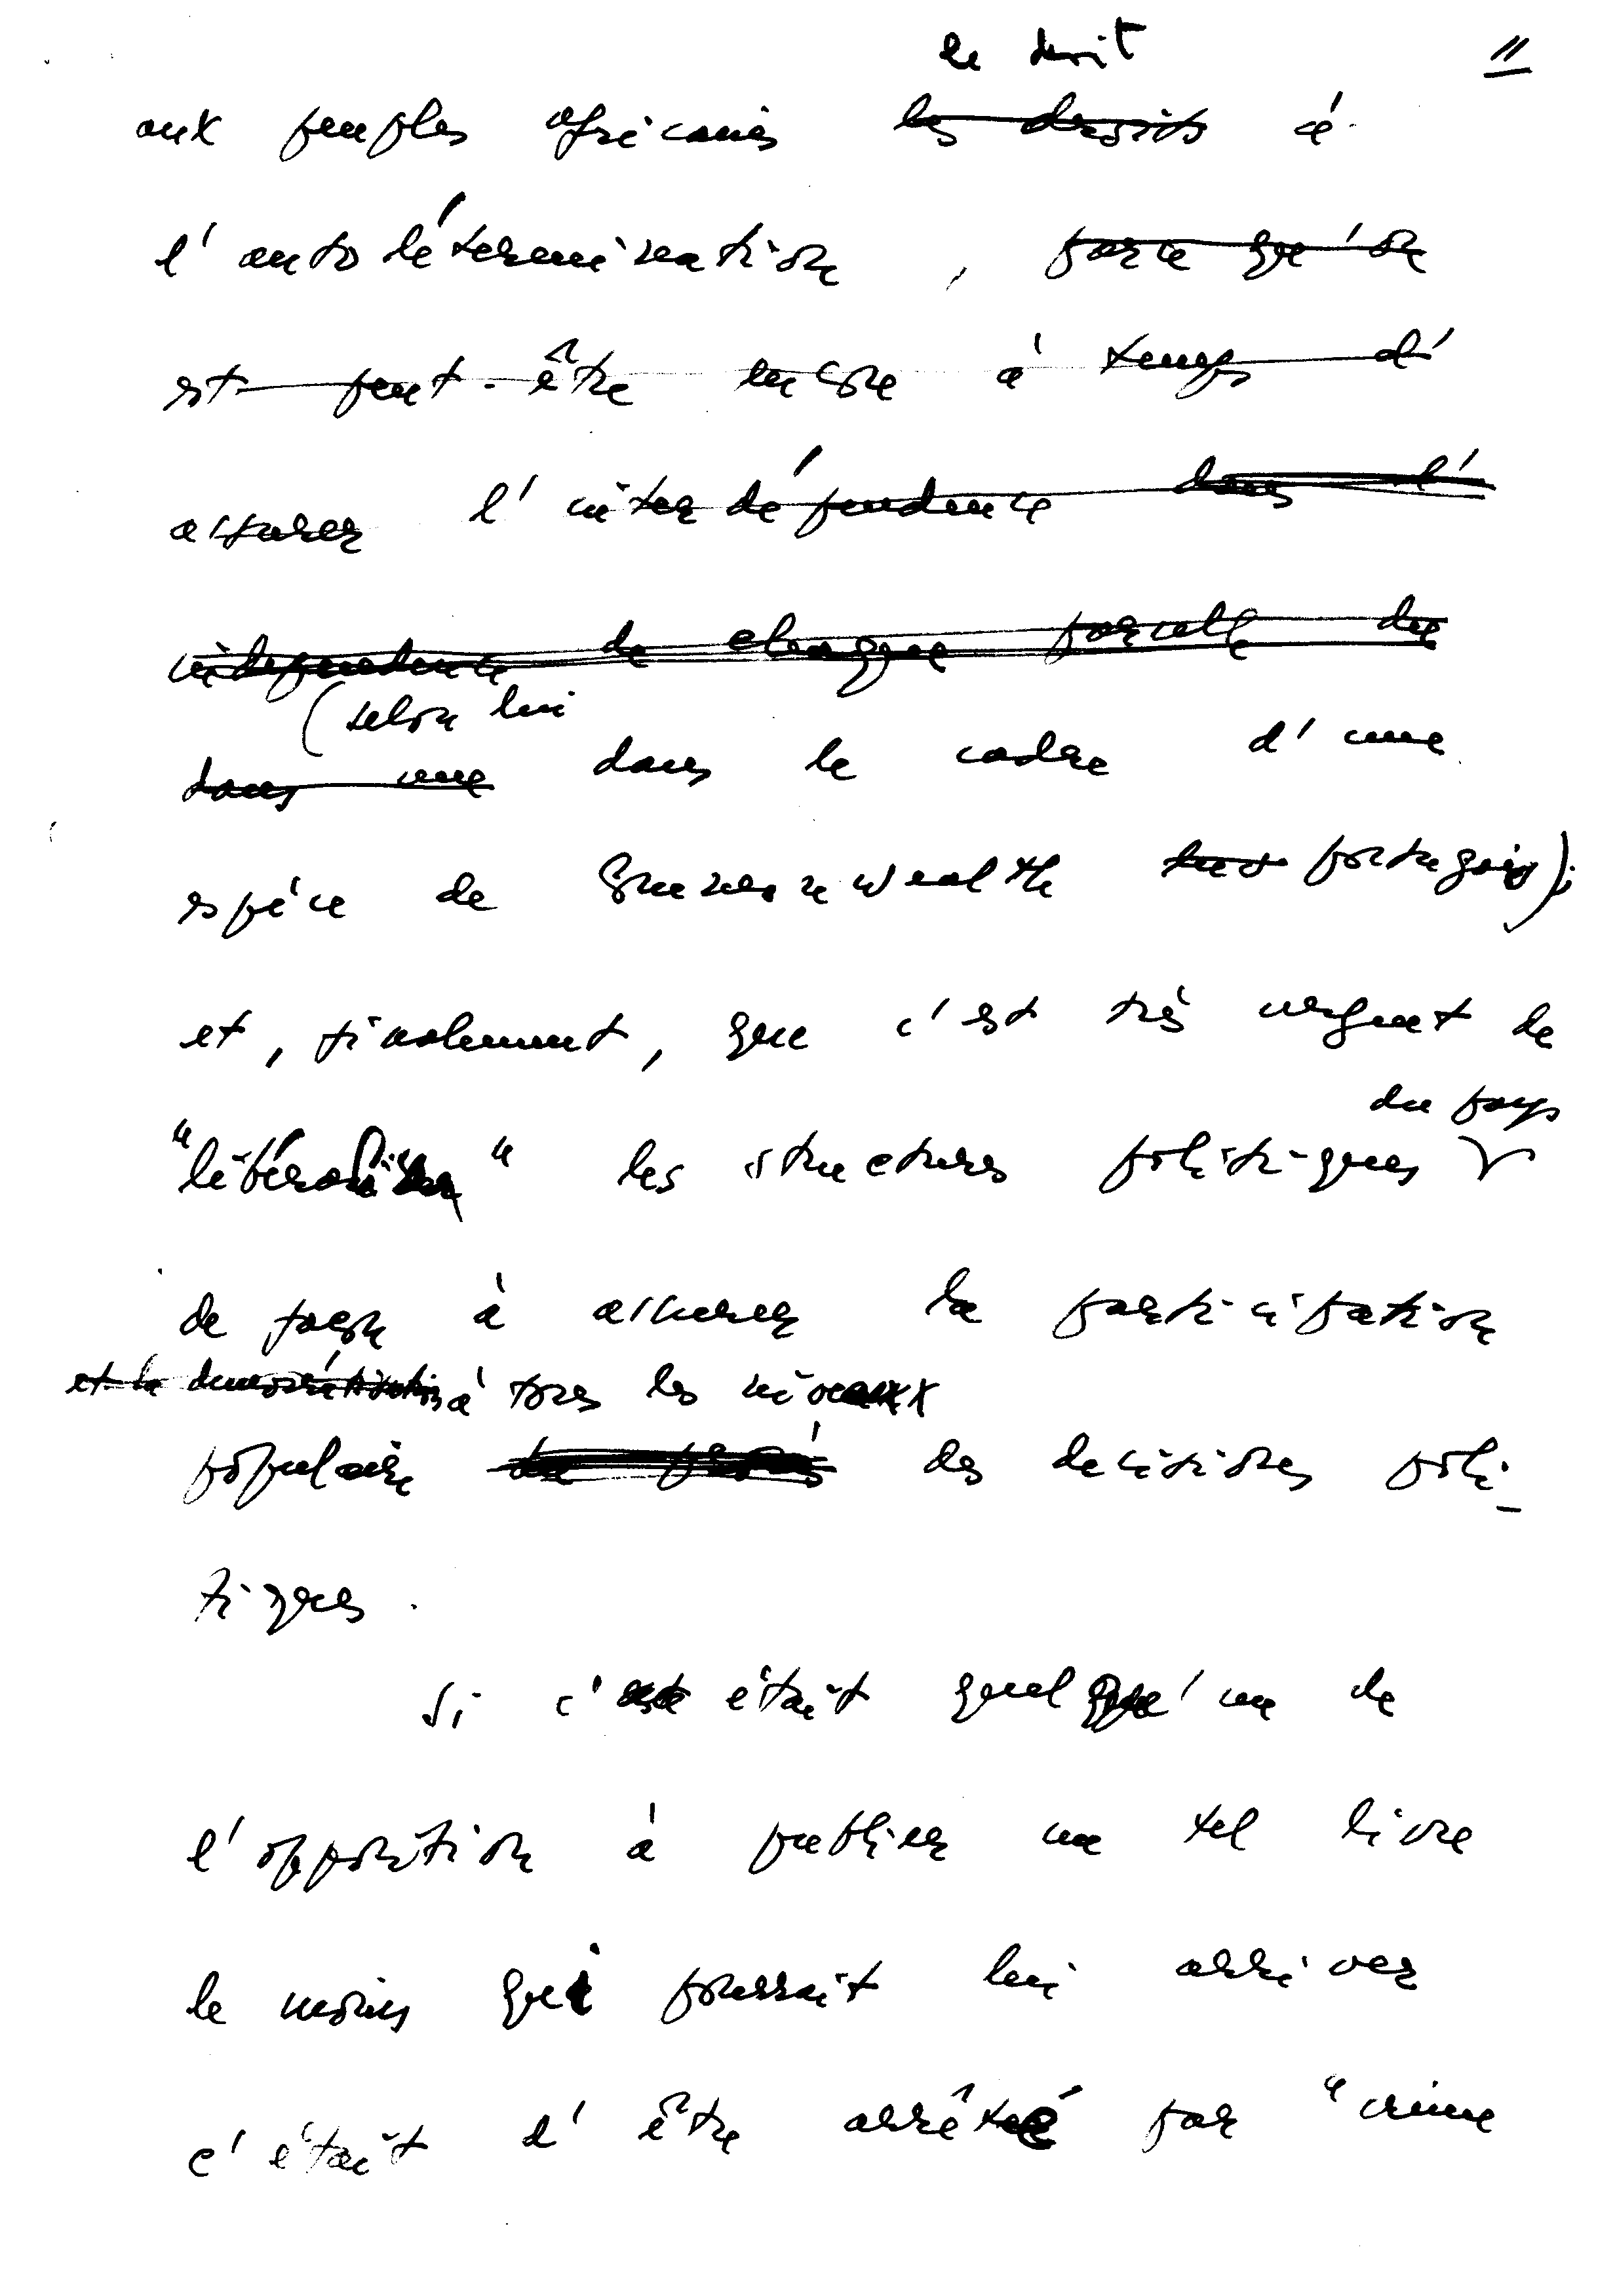 11
le droit
aux peuples africains les droits à
l'autodétermination, parce qu'on
est peut-être encore à temps d'
assurer l'interdépendence dans l'
indépendence de chaque parcelle du
(selon lui
dans une dans le cadre d'une
espéce de Commonwealth portugais);
et, finalement, que c'est très urgent de
du pays
"libéraliser" les structures politiques
de façon à assurer la participation
et la démocratisation à tous les niveaux
populaire des décisions poli-
tiques.
Si c'est était quelqu'un de
l'opposition à publier un tel livre
le moins qui pourrait lui arriver
c'était d'être arrêté par "crime